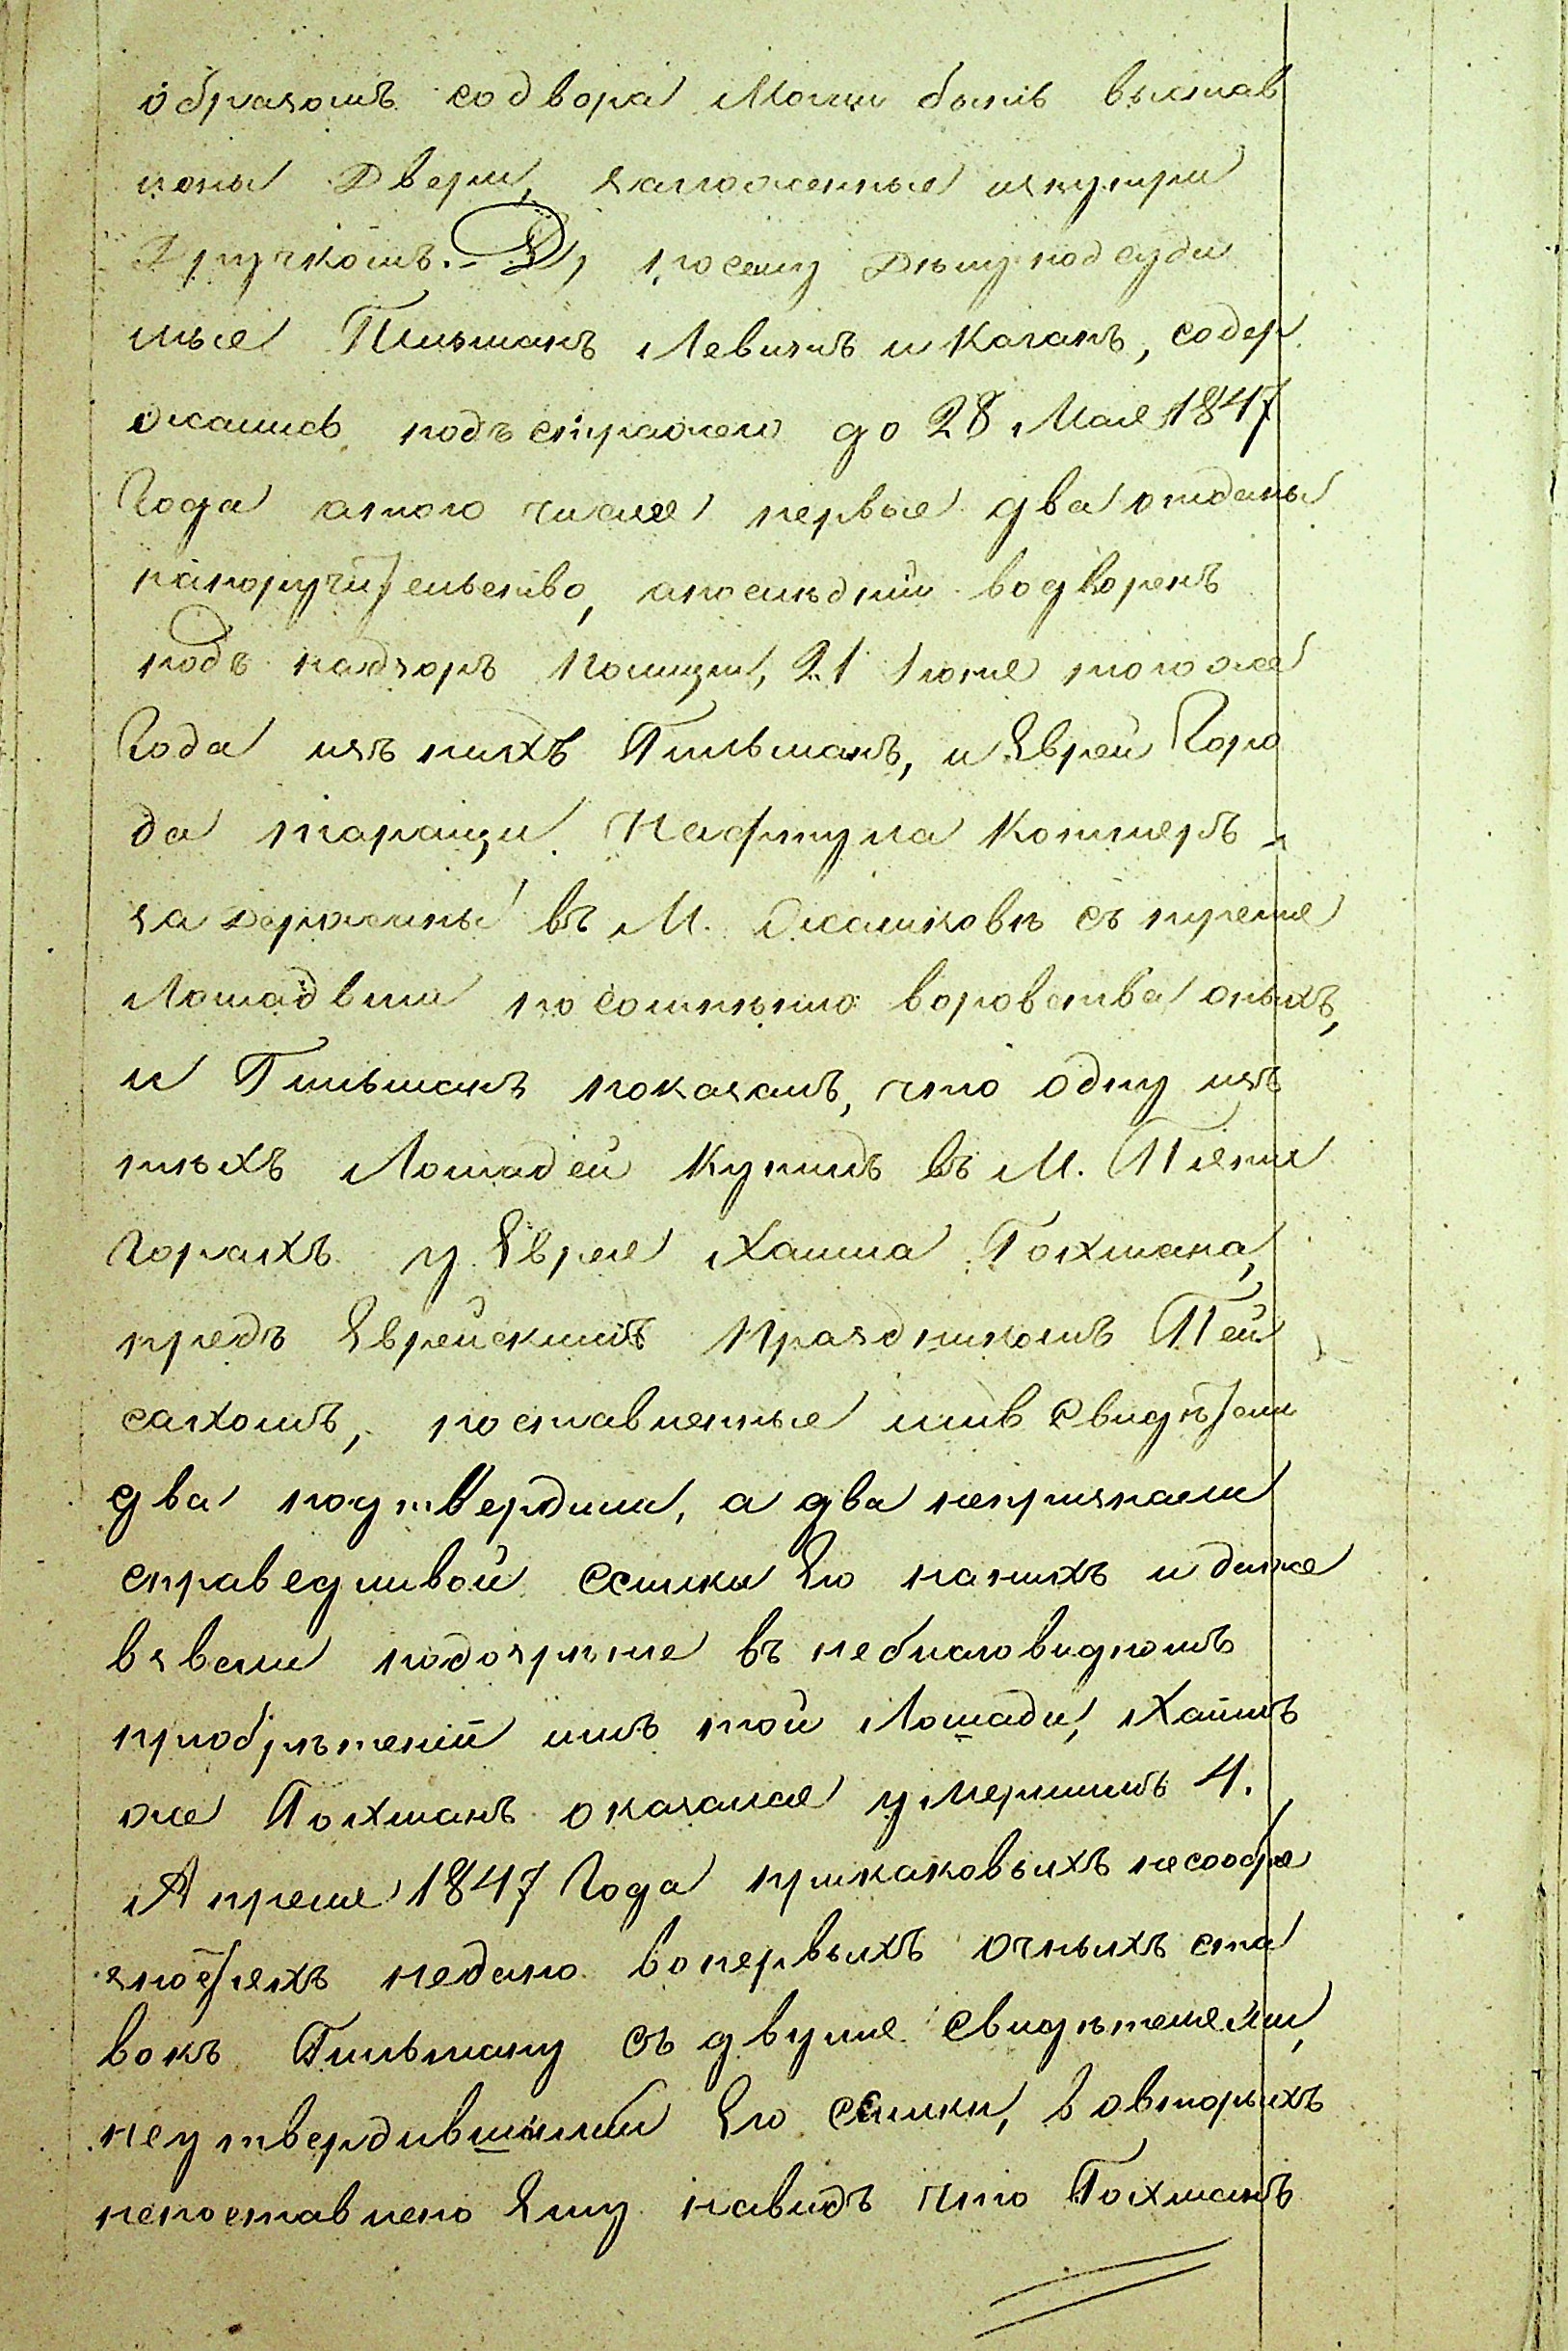 образомъ со двора могли быть выстав
лены двери, заложенные изнутри
дручкомъ. Д, по сему дѣлу подсуди
мые Гильманъ Левизнъ и Каганъ, содер
жались подъ стражею до 28 Мая 1847
Года а того числа первые два отданы
на поручительство, а послѣдній водворенъ
подъ надзоръ полиціи, 21 Іюня того же
Года изъ нихъ Гильманъ, и Еврей Горо
да Таращи Нафтула Котляръ
задержаны въ М. Жашковѣ съ тремя
Лошадьми по сомнѣнію воровства оныхъ,
и Гильманъ показалъ, что одну изъ
тѣхъ Лошадей купилъ въ М. Пяти
горахъ у Еврея Хаима Гохмана,
предъ Еврейскимъ Праздникомъ Пей
сахомъ, поставленные имъ свидѣтели
два подтвердили, а два непризнали
справедливой ссылки Его на нихъ и даже
взвели подозрѣніе въ неблаговидномъ
пріобрѣтеніи имъ той Лошади, Хаимъ
же Гохманъ оказался умершимъ 4.
Апреля 1847 Года при каковыхъ несообра
зностяхъ недано вопервыхъ очныхъ ста
вокъ Гильману съ двумя свидѣтелями,
неутвердившими Его ссылки, вовторыхъ
непоставлено Ему навидъ что Гохманъ